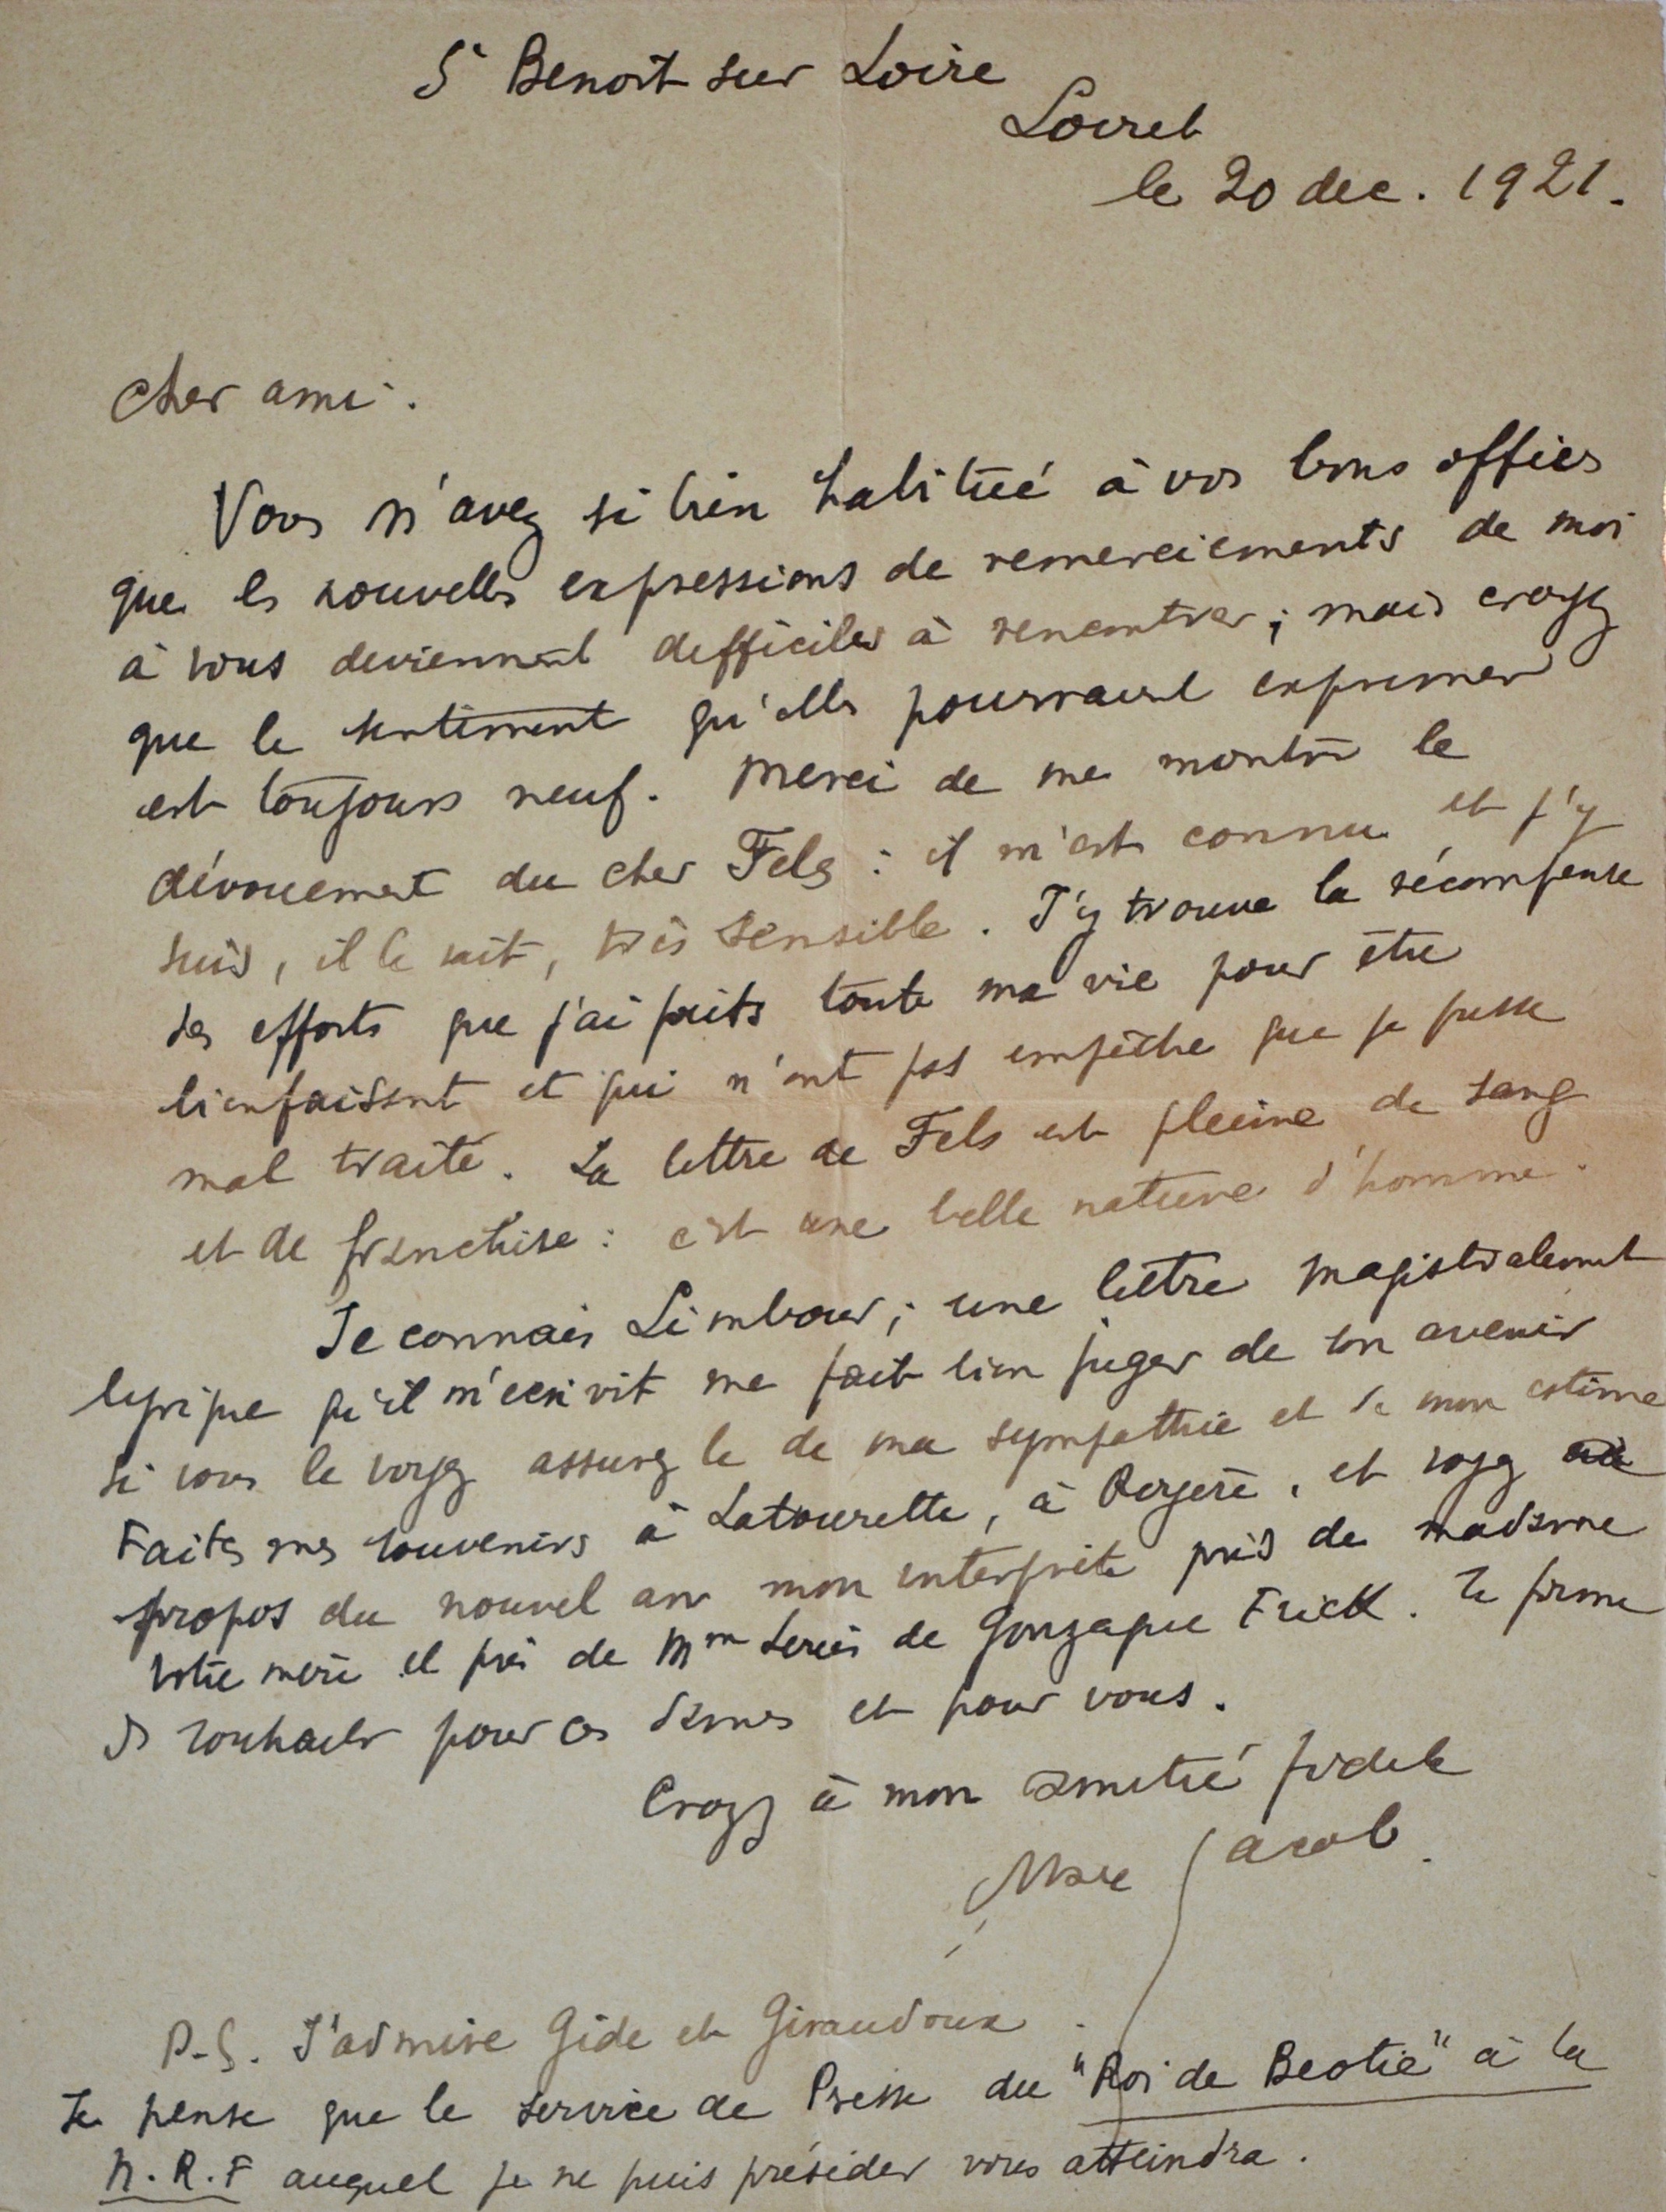 St Benoit sur Loire
Loiret
le 20 dec. 1921.
Cher ami.
Vous m'avez si bien habitué à vos bons offices
que les nouvelles expressions de remerciements de moi
à vous deviennent difficiles à rencontrer ; mais croyez
que le sentiment qu'elles pourraient exprimer
est toujours neuf. Merci de me montrer le
dévouement du cher Fels : il m'est connu et j'y
suis, il le sait, très sensible. J'y trouve la récompense
des efforts que j'ai faits toute ma vie pour être
bienfaisant et qui n'ont pas empêché que je fusse
mal traité. La lettre de Fels est pleine de sang
et de franchise : c'est une belle nature d'homme.
Je connais Limbour ; une lettre magistralement
lyrique qu'il m'écrivit me fait bien juger de son avenir
si vous le voyez assurez le de ma sympathie et de mon estime
Faites mes souvenirs à Latourette, à et soyez
propos du nouvel an mon interprète près de madame
votre mère et près de Mme de Gonzague Frick. Je forme
des souhaits pour ces dames et pour vous.
Croyez à mon amitié fidele
Max Jacob.
P.S. J'admire Gide et Giraudoux.
Je pense que le service de Presse du "Roi de Beotie" à la
N.R.F auquel je ne puis présider vous atteindra.